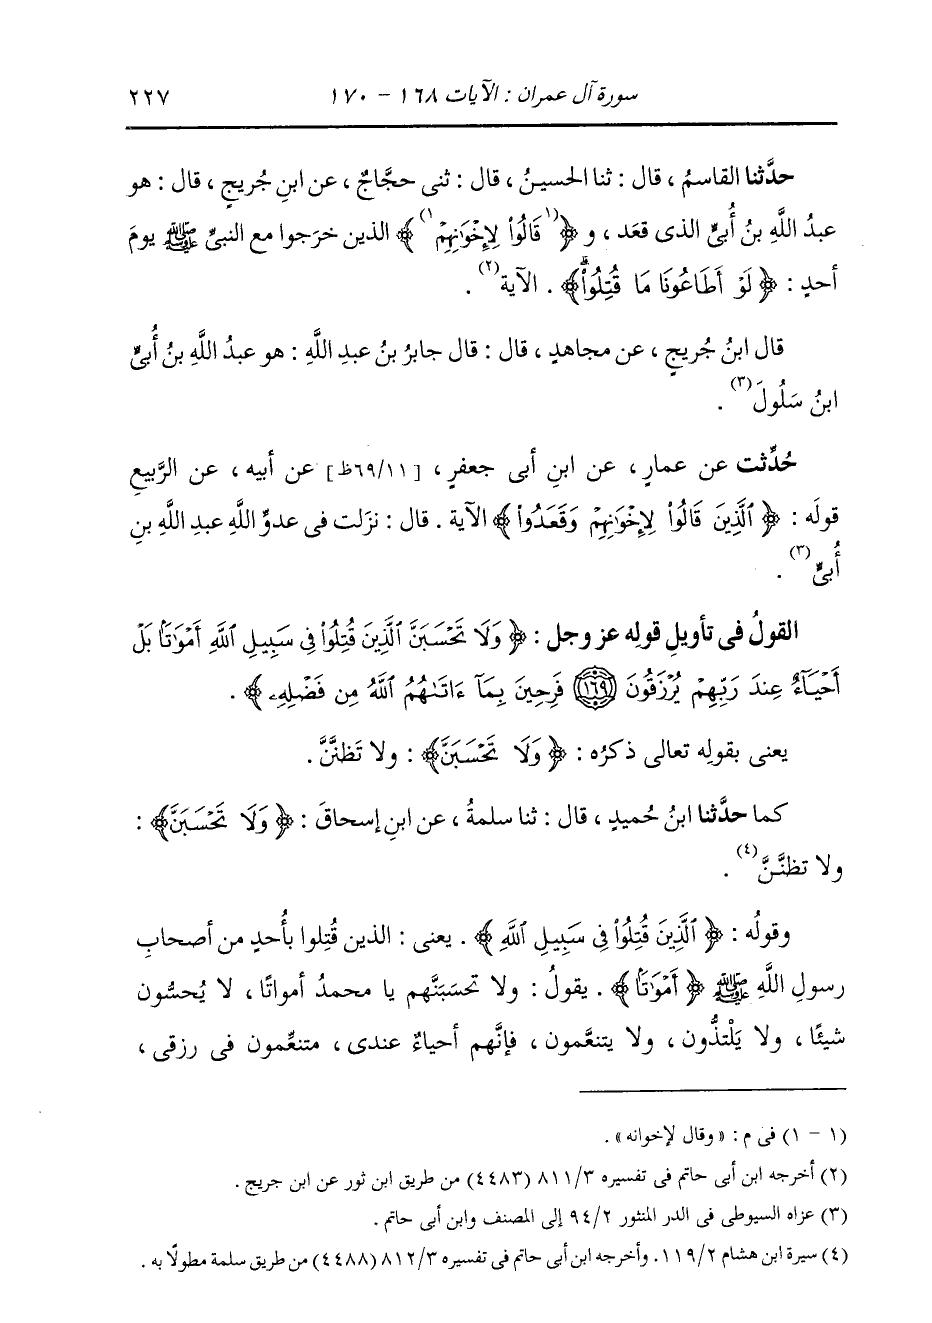 سورة آل عمران : الآيات ١٦٨ - ١٧٠ ٢٢٧
حدَّثنا القاسمُ ، قال : ثنا الحسينُ ، قال : ثنى حجَّاجٌ ، عن ابنِ جُريجٍ ، قال : هو
عبدُ اللَّهِ بنُ أُبيٍّ الذى قعَد ، و ﴿(١ قَالُوا۟ لِإِخْوَٰنِهِمْ ١)﴾ الذين خرَجوا مع النبىِّ ﷺ يومَ
أحدٍ : ﴿ لَوْ أَطَاعُونَا مَا قُتِلُوا۟ۗ﴾ . الآية(٢) .
قال ابنُ جُريجٍ ، عن مجاهدٍ ، قال : قال جابرُ بنُ عبدِ اللَّهِ : هو عبدُ اللَّهِ بنُ أُبىٍّ
ابنُ سَلُولَ(٣) .
حُدِّثت عن عمارٍ ، عن ابنِ أبى جعفرٍ ، [٦٩/١١ظ] عن أبيه ، عن الرَّبيعِ
قولَه : ﴿ ٱلَّذِينَ قَالُوا۟ لِإِخْوَٰنِهِمْ وَقَعَدُوا۟﴾ الآية . قال : نزَلت فى عدوِّ اللَّهِ عبدِ اللَّهِ بنِ
أُبىٍّ(٣) .
القولُ فى تأويلِ قولِه عز وجل : ﴿ وَلَا تَحْسَبَنَّ ٱلَّذِينَ قُتِلُوا۟ فِى سَبِيلِ ٱللَّهِ أَمْوَٰتًۢا بَلْ
أَحْيَآءٌ عِندَ رَبِّهِمْ يُرْزَقُونَ ١٦٩ فَرِحِينَ بِمَآ ءَاتَىٰهُمُ ٱللَّهُ مِن فَضْلِهِۦ ﴾ .
يعنى بقولِه تعالى ذكرُه : ﴿ وَلَا تَحْسَبَنَّ﴾ : ولا تَظنَّنَّ .
كما حدَّثنا ابنُ حُميدٍ ، قال : ثنا سلمةُ ، عن ابنِ إسحاقَ : ﴿ وَلَا تَحْسَبَنَّ﴾ :
ولا تظنَّنَّ(٤) .
وقولُه : ﴿ ٱلَّذِينَ قُتِلُوا۟ فِى سَبِيلِ ٱللَّهِ ﴾ . يعنى : الذين قُتِلوا بأُحدٍ من أصحابِ
رسولِ اللَّهِ ﷺ ﴿ أَمْوَٰتًۢا ﴾ . يقولُ : ولا تحسَبَنَّهم يا محمدُ أمواتًا ، لا يُحسُّون
شيئًا ، ولا يَلْتذُّون ، ولا يتنعَّمون ، فإنَّهم أحياءٌ عندى ، متنعِّمون فى رزقى ،
(١ - ١) فى م : « وقال لإخوانه » .
(٢) أخرجه ابن أبى حاتم فى تفسيره ٨١١/٣ (٤٤٨٣) من طريق ابن ثور عن ابن جريج .
(٣) عزاه السيوطى فى الدر المنثور ٩٤/٢ إلى المصنف وابن أبى حاتم .
(٤) سيرة ابن هشام ١١٩/٢. وأخرجه ابن أبى حاتم فى تفسيره ٨١٢/٣ (٤٤٨٨) من طريق سلمة مطولًا به .